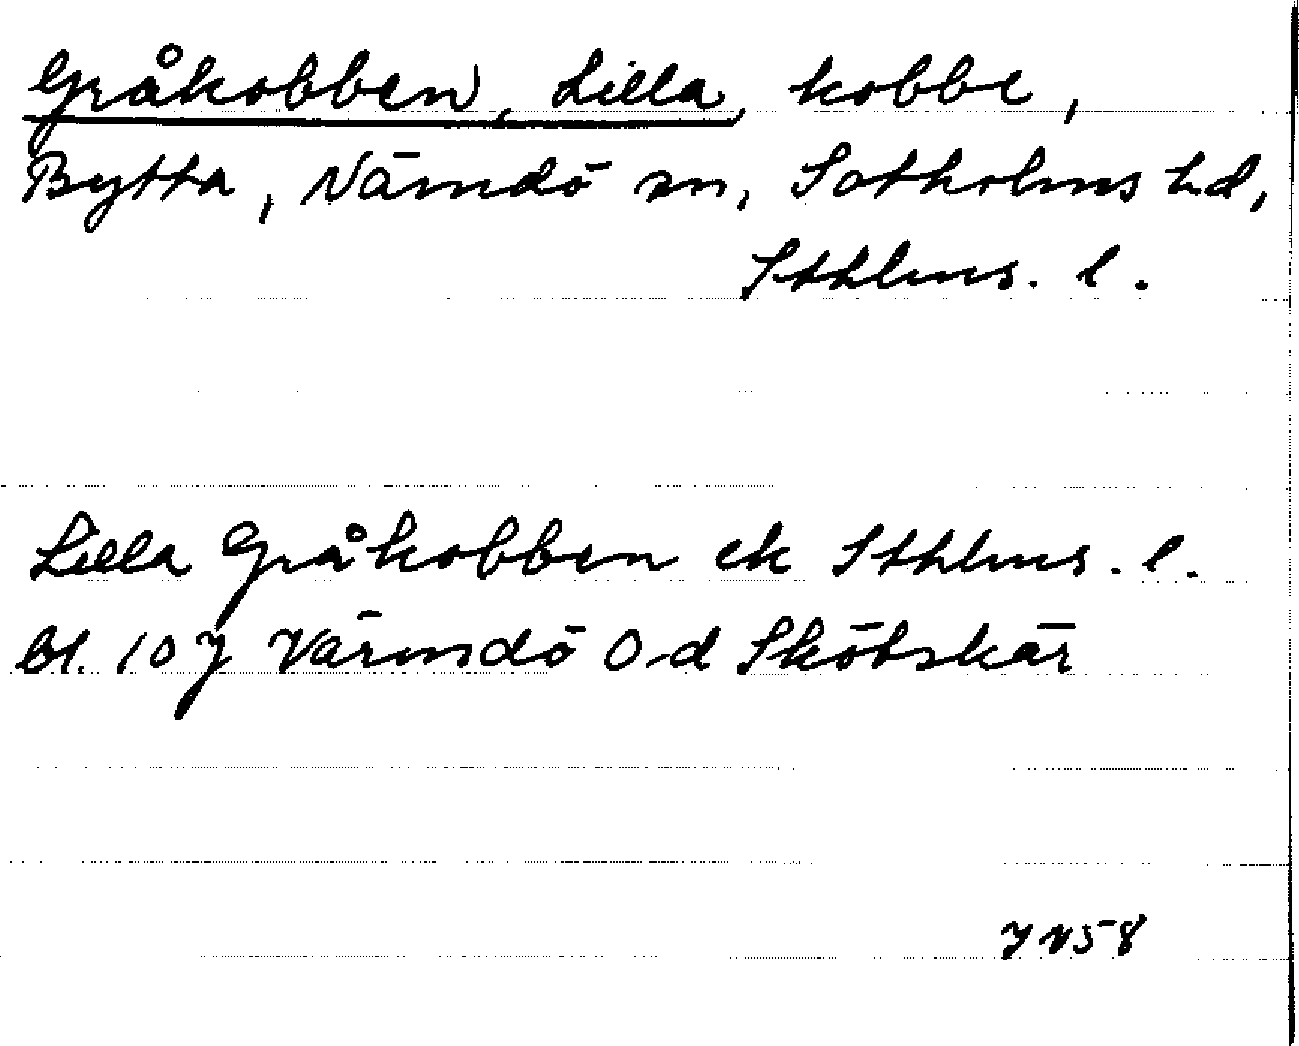 Gråkobben, Lilla, kobbe,
Bytta, Nämdö sn, Sotholms hd,
Sthlms. l.
Lilla Gråkobben ek Sthlms. l.
bl. 107 Värmdö O-d Sköbskär